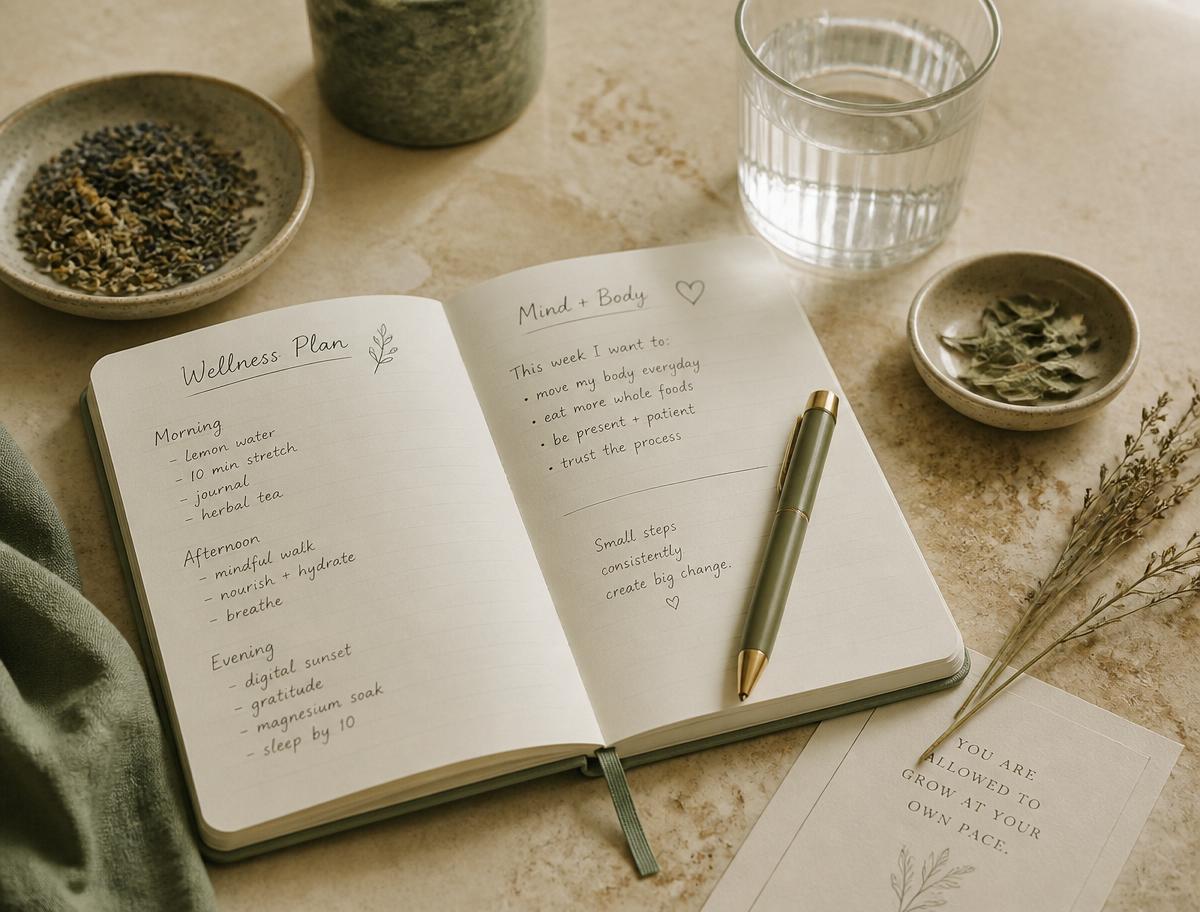 Wellness Plan
Morning
- lemon water
- 10 min stretch
- journal
- herbal tea
Afternoon
- mindful walk
- nourish + hydrate
- breathe
Evening
- digital sunset
- gratitude
- magnesium soak
- sleep by 10
Mind + Body
This week I want to:
• move my body everyday
• eat more whole foods
• be present + patient
• trust the process
Small steps
consistently
create big change.
YOU ARE
ALLOWED TO
GROW AT YOUR
OWN PACE.